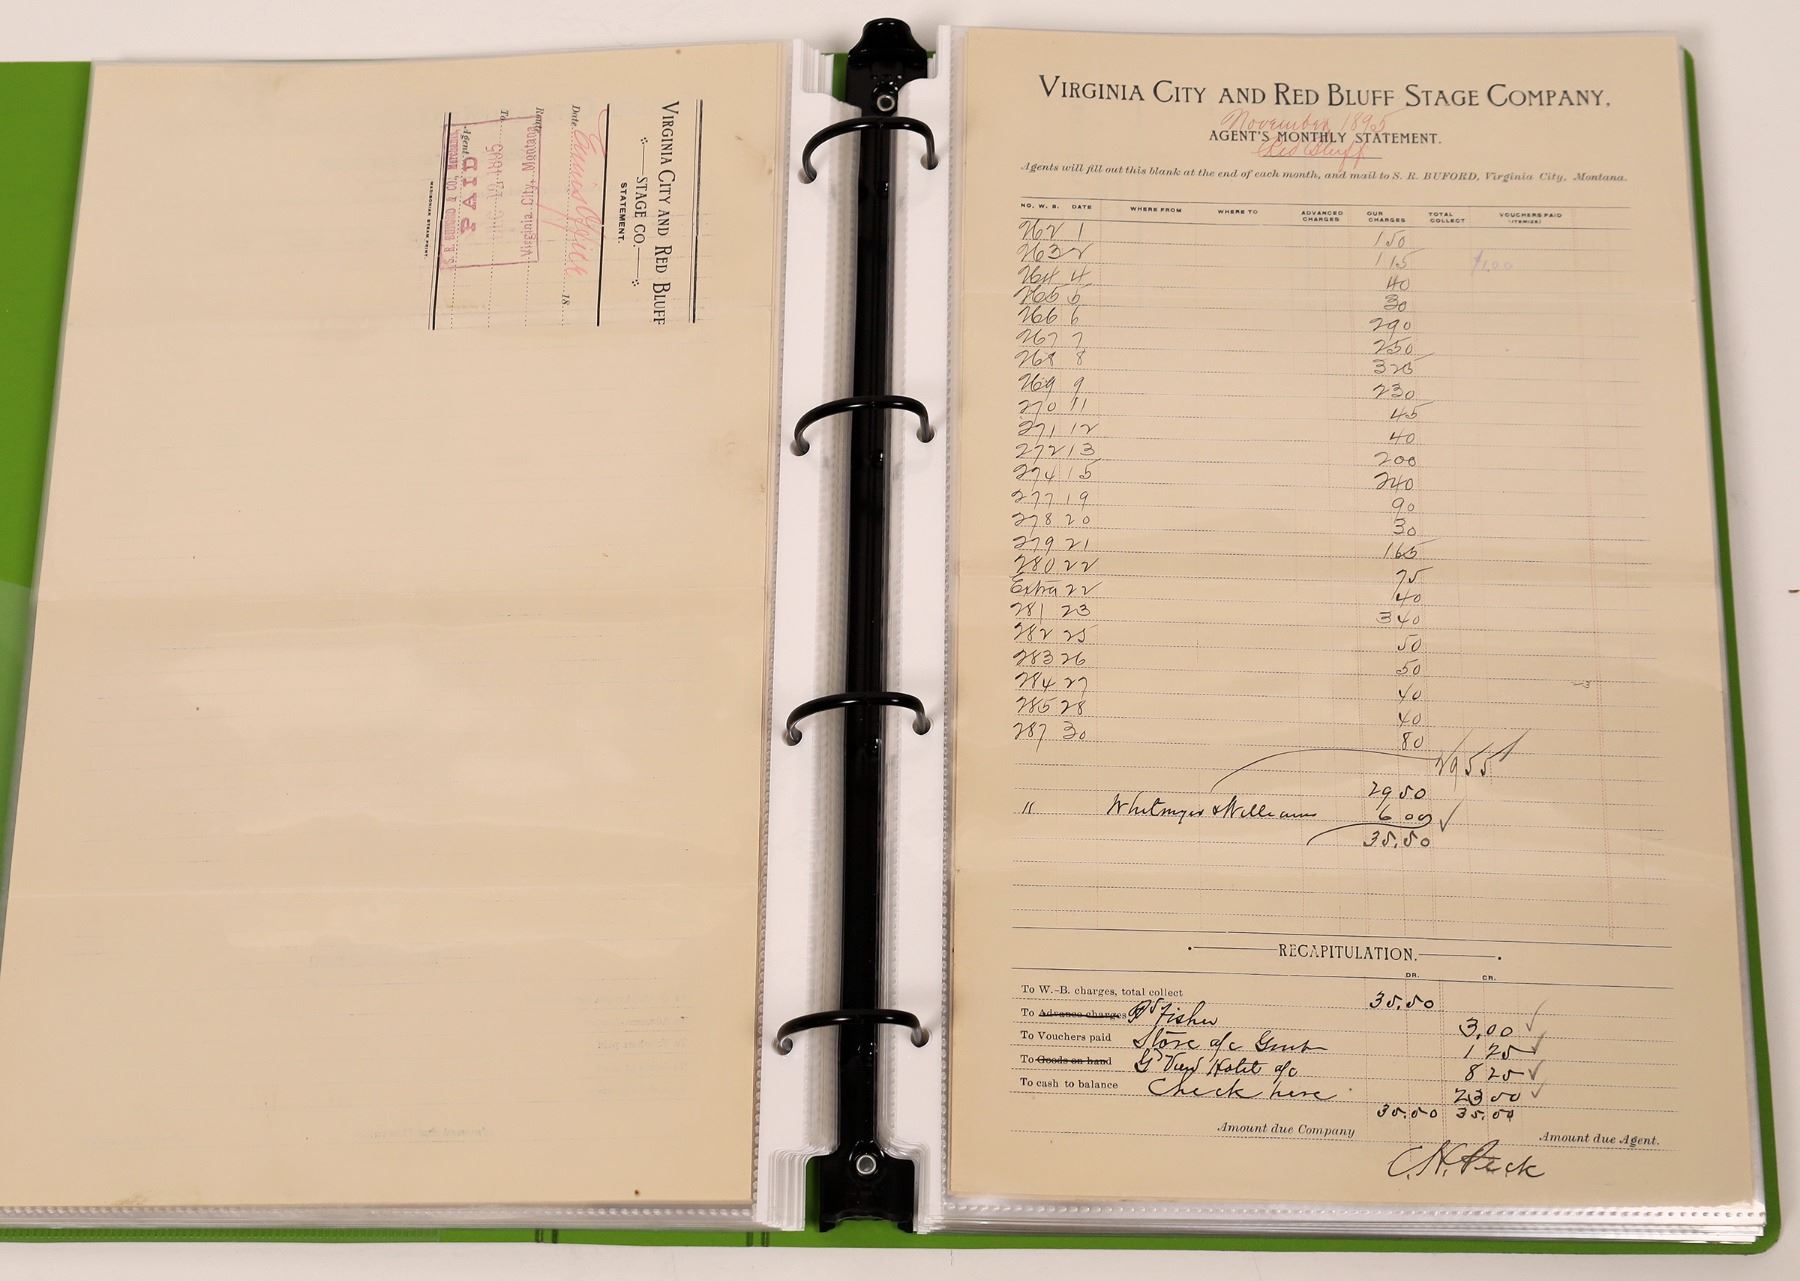 VIRGINIA CITY AND RED BLUFF
STAGE CO.
STATEMENT.
Date 18
Route
To
Agent
PAID
Virginia City, Montana
MADISONIAN STEAM PRINT.
VIRGINIA CITY AND RED BLUFF STAGE COMPANY.
November 1895
AGENT'S MONTHLY STATEMENT.
Red Bluff
Agents will fill out this blank at the end of each month, and mail to S. R. BUFORD, Virginia City, Montana.
NO. W. B. DATE WHERE FROM WHERE TO ADVANCED CHARGES OUR CHARGES TOTAL COLLECT VOUCHERS PAID (ITEMIZE)
262 1 150
263 2 115 $1.00
264 4 40
265 5 30
266 6 290
267 7 250
268 8 325
269 9 230
270 11 45
271 12 40
272 13 200
274 15 240
277 19 90
278 20 30
279 21 165
280 22 75
Extra 22 40
281 23 340
282 25 50
283 26 50
284 27 40
285 28 40
287 30 80
2955
2950
" Whitmyer & Williams 6 00
35.50
RECAPITULATION.
DR. CR.
To W.-B. charges, total collect 35.50
To Advance charges Fisher 3.00
To Vouchers paid Store a/c 1 25
To Goods on hand Hotel a/c 8 25
To cash to balance Check here 23 00
35.50 35.50
Amount due Company Amount due Agent.
C. H. Peck